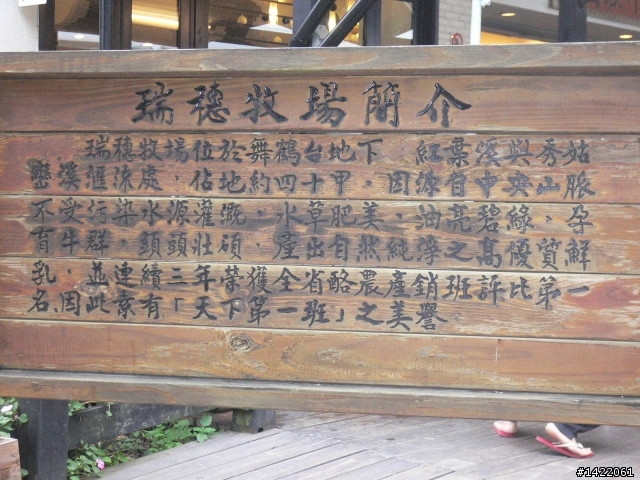 瑞穗牧場簡介
瑞穗牧場位於舞鶴台地下 紅葉溪與秀姑
巒溪匯流處,佔地約四十甲,因源自中央山脈
不受污染水源灌溉,水草肥美,油亮碧綠,孕
育牛群,頭頭壯碩,產出自然純淨之高優質鮮
乳,並連續三年榮獲全省酪農產銷班評比第一
名,因此素有「天下第一班」之美譽.
#1422061